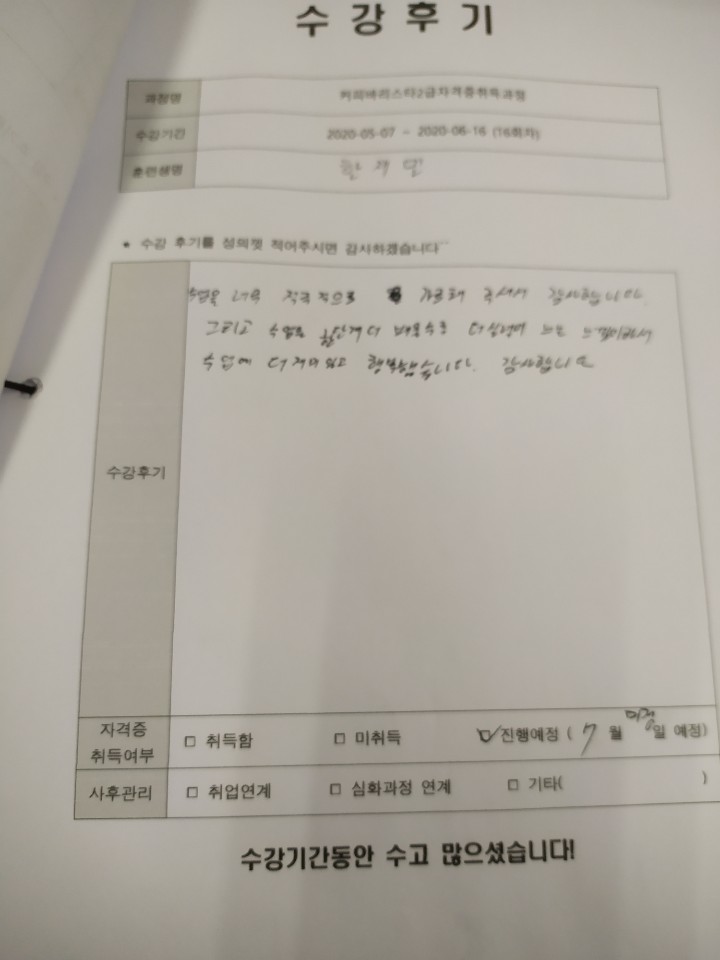 수 강 후 기
과정명 커피바리스타2급자격증취득과정
수강기간 2020-05-07 ~ 2020-06-16 (16회차)
훈련생명
* 수강 후기를 성의껏 적어주시면 감사하겠습니다~~
수업을 너무 적극적으로 가르쳐 주셔서 감사합니다.
그리고 수업은 한단계 더 배울수록 더 느는 느낌이라서
수업에 더 재미있고 행복했습니다. 감사합니다
수강후기
자격증 취득여부 □ 취득함 □ 미취득 ☑ 진행예정 ( 7 월 미정 일 예정)
사후관리 □ 취업연계 □ 심화과정 연계 □ 기타( )
수강기간동안 수고 많으셨습니다!